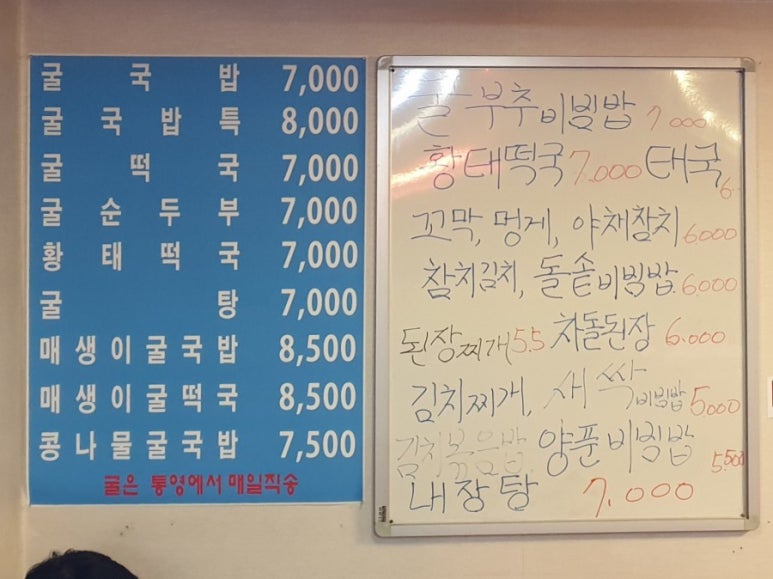 굴국밥 7,000
굴국밥특 8,000
굴떡국 7,000
굴순두부 7,000
황태떡국 7,000
굴탕 7,000
매생이굴국밥 8,500
매생이굴떡국 8,500
콩나물굴국밥 7,500
굴은 통영에서 매일직송
굴 부추비빔밥 7000
황태떡국 7.000 태국 6.
꼬막, 멍게, 야채참치 6000
참치김치, 돌솥비빔밥 6.000
된장찌개 5.5 차돌된장 6.000
김치찌개, 새싹비빔밥 5000
김치볶음밥 양푼비빔밥 5.500
내장탕 7.000